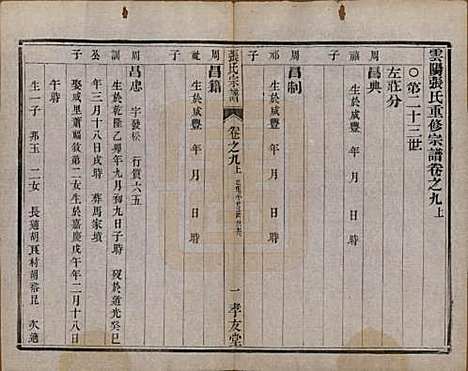 雲陽張氏重修宗譜卷之九上
○第二十三世
左莊分
周 昌典
福子 生於咸豐 年 月 日 時
周 昌制
祁子 生於咸豐 年 月 日 時
張氏宗譜 卷之九上 一 孝友堂
周 昌籍
子 生於咸豐 年 月 日 時
周 昌忠 字發松 行價六五
訓 生於乾隆乙卯年九月初九日子時 歿於道光癸巳
公 年三月十八日戌時 葬馬家墳
子 娶咸里蕭福敘第二女生於嘉慶戊午年二月十八日
午時
生一子 邦玉 二女 長適胡具村胡裕昆 次適